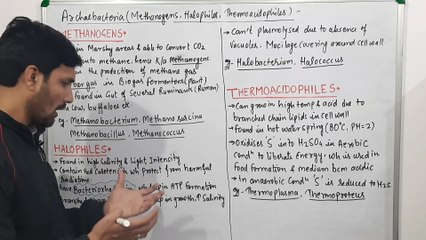 Archaebacteria (Methanogens, Halophiles, Thermoacidophiles) -
METHANOGENS
in Marshy areas & able to convert CO₂
into methane, hence k/a methanogens
in the production of methane gas
gas) in Biogas fermentors (plant)
found in Gut of several Ruminants (Rumen)
Cow, buffaloes etc
Methanobacterium, Methanosarcina
Methanobacillus, Methanococcus
HALOPHILES
Found in high Salinity & Light Intensity
Contains red Carotenoids wh. Protect from harmful
radiations
have in ATP formation
growth, ↑ Salinity
Can't plasmolysed due to absence of
Vacuoles, Mucilage covering around cell wall
eg. Halobacterium, Halococcus
THERMOACIDOPHILES
→ Can grow in high temp & acid due to
branched chain lipids in cell wall
→ Found in hot water spring (80°C, PH=2)
→ Oxidises 'S' into H₂SO₄ in Aerobic
Condⁿ to liberate energy, wh. is used in
food formation & medium bcm acidic
→ In anaerobic Condⁿ 'S' is reduced to H₂S
eg - Thermoplasma, Thermoproteus